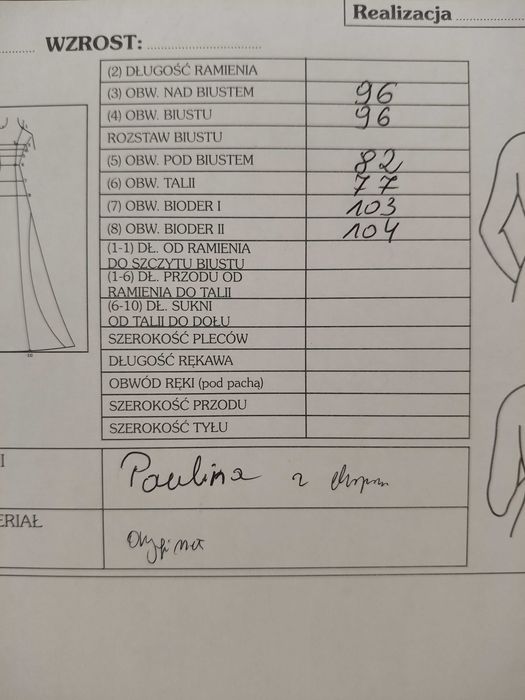 Realizacja
WZROST:
(2) DŁUGOŚĆ RAMIENIA
(3) OBW. NAD BIUSTEM 96
(4) OBW. BIUSTU 96
ROZSTAW BIUSTU
(5) OBW. POD BIUSTEM 82
(6) OBW. TALII 77
(7) OBW. BIODER I 103
(8) OBW. BIODER II 104
(1-1) DŁ. OD RAMIENIA
DO SZCZYTU BIUSTU
(1-6) DŁ. PRZODU OD
RAMIENIA DO TALII
(6-10) DŁ. SUKNI
OD TALII DO DOŁU
SZEROKOŚĆ PLECÓW
DŁUGOŚĆ RĘKAWA
OBWÓD RĘKI (pod pachą)
SZEROKOŚĆ PRZODU
SZEROKOŚĆ TYŁU
I Paulina z
ERIAŁ
10